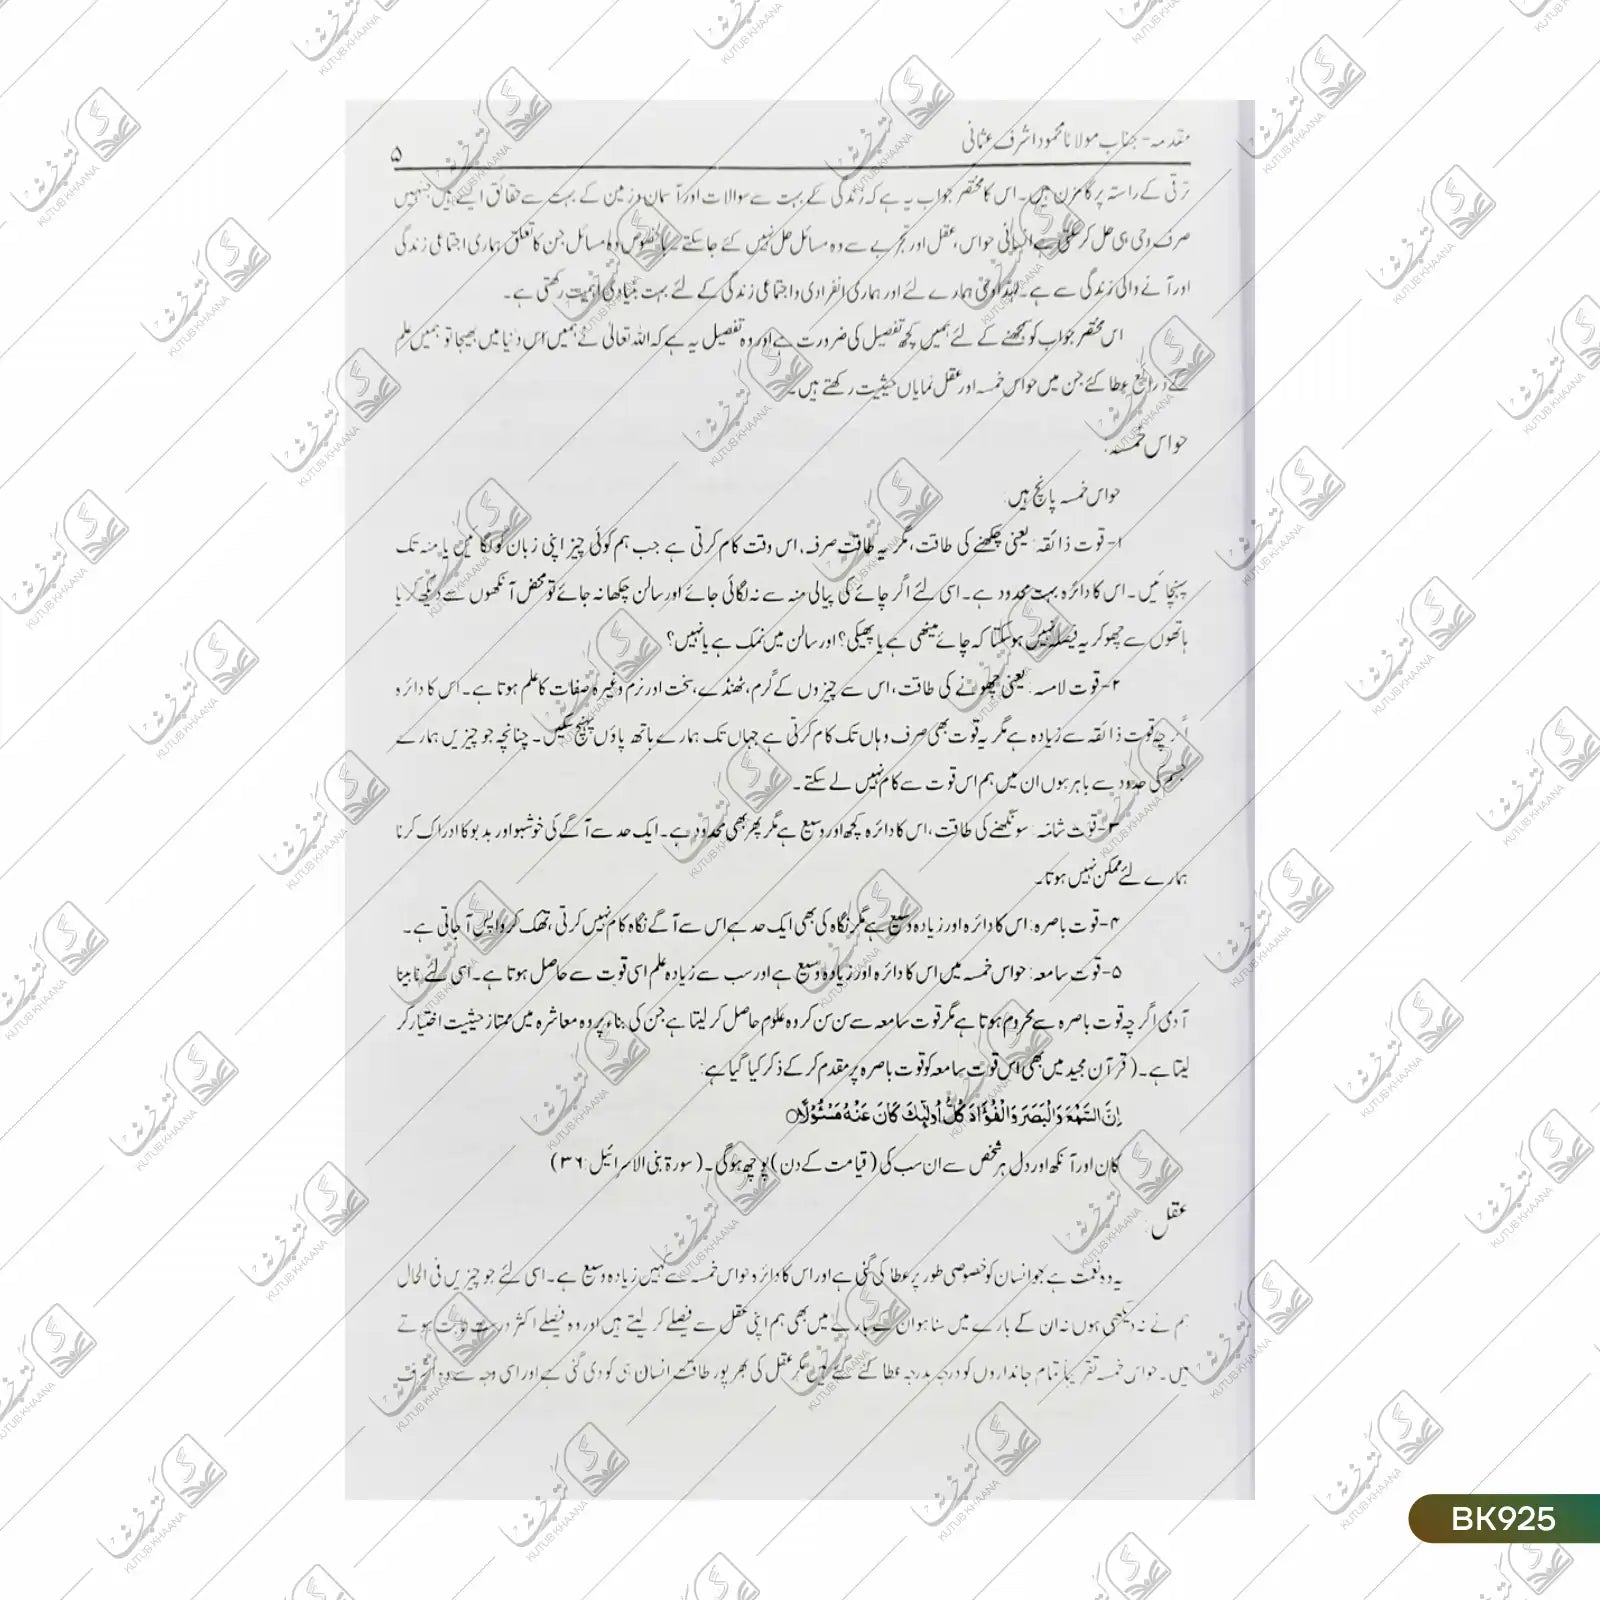 مقدمہ - جناب مولانا محمود اشرف عثمانی
۵
ترقی کے راستہ پر گامزن ہیں۔ اس کا مختصر جواب یہ ہے کہ زندگی کے بہت سے سوالات اور آسمان و زمین کے بہت سے حقائق ایسے ہیں جنہیں
صرف وحی ہی حل کر سکتی ہے انسانی حواس، عقل اور تجربے سے وہ مسائل حل نہیں کئے جا سکتے۔ بالخصوص وہ مسائل جن کا تعلق ہماری اجتماعی زندگی
اور آنے والی زندگی سے ہے۔ لہٰذا وحی ہمارے لئے اور ہماری انفرادی و اجتماعی زندگی کے لئے بہت بنیادی اہمیت رکھتی ہے۔
اس مختصر جواب کو سمجھنے کے لئے ہمیں کچھ تفصیل کی ضرورت ہے اور وہ تفصیل یہ ہے کہ اللہ تعالیٰ نے ہمیں اس دنیا میں بھیجا تو ہمیں علم
کے ذرائع عطا کئے جن میں حواس خمسہ اور عقل نمایاں حیثیت رکھتے ہیں۔
حواس خمسہ:
حواس خمسہ پانچ ہیں:
۱- قوت ذائقہ: یعنی چکھنے کی طاقت، مگر یہ طاقت صرف، اس وقت کام کرتی ہے جب ہم کوئی چیز اپنی زبان کو لگائیں یا منہ تک
پہنچائیں۔ اس کا دائرہ بہت محدود ہے۔ اسی لئے اگر چائے کی پیالی منہ سے نہ لگائی جائے اور سالن چکھا نہ جائے تو محض آنکھوں سے دیکھ کر یا
ہاتھوں سے چھو کر یہ فیصلہ نہیں ہو سکتا کہ چائے میٹھی ہے یا پھیکی؟ اور سالن میں نمک ہے یا نہیں؟
۲- قوت لامسہ: یعنی چھونے کی طاقت، اس سے چیزوں کے گرم، ٹھنڈے، سخت اور نرم وغیرہ صفات کا علم ہوتا ہے۔ اس کا دائرہ
اگر چہ قوت ذائقہ سے زیادہ ہے مگر یہ قوت بھی صرف وہاں تک کام کرتی ہے جہاں تک ہمارے ہاتھ پاؤں پہنچ سکیں۔ چنانچہ جو چیزیں ہمارے
جسم کی حدود سے باہر ہوں ان میں ہم اس قوت سے کام نہیں لے سکتے۔
۳- قوت شامہ: سونگھنے کی طاقت، اس کا دائرہ کچھ اور وسیع ہے مگر پھر بھی محدود ہے۔ ایک حد سے آگے کی خوشبو اور بدبو کا ادراک کرنا
ہمارے لئے ممکن نہیں ہوتا۔
۴- قوت باصرہ: اس کا دائرہ اور زیادہ وسیع ہے مگر نگاہ کی بھی ایک حد ہے اس سے آگے نگاہ کام نہیں کرتی، تھک کر واپس آ جاتی ہے۔
۵- قوت سامعہ: حواس خمسہ میں اس کا دائرہ اور زیادہ وسیع ہے اور سب سے زیادہ علم اسی قوت سے حاصل ہوتا ہے۔ اسی لئے نابینا
آدمی اگر چہ قوت باصرہ سے محروم ہوتا ہے مگر قوت سامعہ سے سن سن کر وہ علوم حاصل کر لیتا ہے جن کی بناء پر وہ معاشرہ میں ممتاز حیثیت اختیار کر
لیتا ہے۔ (قرآن مجید میں بھی اس قوت سامعہ کو قوت باصرہ پر مقدم کر کے ذکر کیا گیا ہے:
اِنَّ السَّمْعَ وَالْبَصَرَ وَالْفُؤَادَ كُلُّ اُولٰٓئِكَ كَانَ عَنْهُ مَسْئُوْلًا
کان اور آنکھ اور دل ہر شخص سے ان سب کی (قیامت کے دن) پوچھ ہوگی۔ (سورۃ بنی الاسرائیل: ۳۶)
عقل:
یہ وہ نعمت ہے جو انسان کو خصوصی طور پر عطا کی گئی ہے اور اس کا دائرہ حواس خمسہ سے کہیں زیادہ وسیع ہے۔ اسی لئے جو چیزیں فی الحال
ہم نے نہ دیکھی ہوں نہ ان کے بارے میں سنا ہو ان کے بارے میں بھی ہم اپنی عقل سے فیصلے کر لیتے ہیں اور وہ فیصلے اکثر درست ثابت ہوتے
ہیں۔ حواس خمسہ تقریباً تمام جانداروں کو درجہ بدرجہ عطا کئے گئے ہیں مگر عقل کی بھرپور طاقت انسان ہی کو دی گئی ہے اور اسی وجہ سے وہ اشرف
کتب خانہ
KUTUB KHAANA
BK925